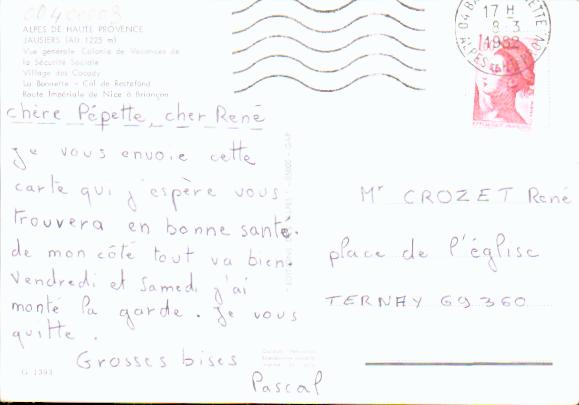 00400003
ALPES DE HAUTE PROVENCE
JAUSIERS (Alt 1225 m)
Vue générale Colonie de Vacances de
la Sécurité Sociale
Village des Cocody
La Bonnette - Col de Restefond
Route Impériale de Nice à Briançon
chère Pépette, cher René
Je vous envoie cette
carte qui j'espère vous
trouvera en bonne santé.
de mon côté tout va bien.
Vendredi et Samedi j'ai
monté la garde. Je vous
quitte.
Grosses bises
Pascal
G 1393
17 H
8-3
1982
Mr CROZET René
place de l'église
TERNAY 69360